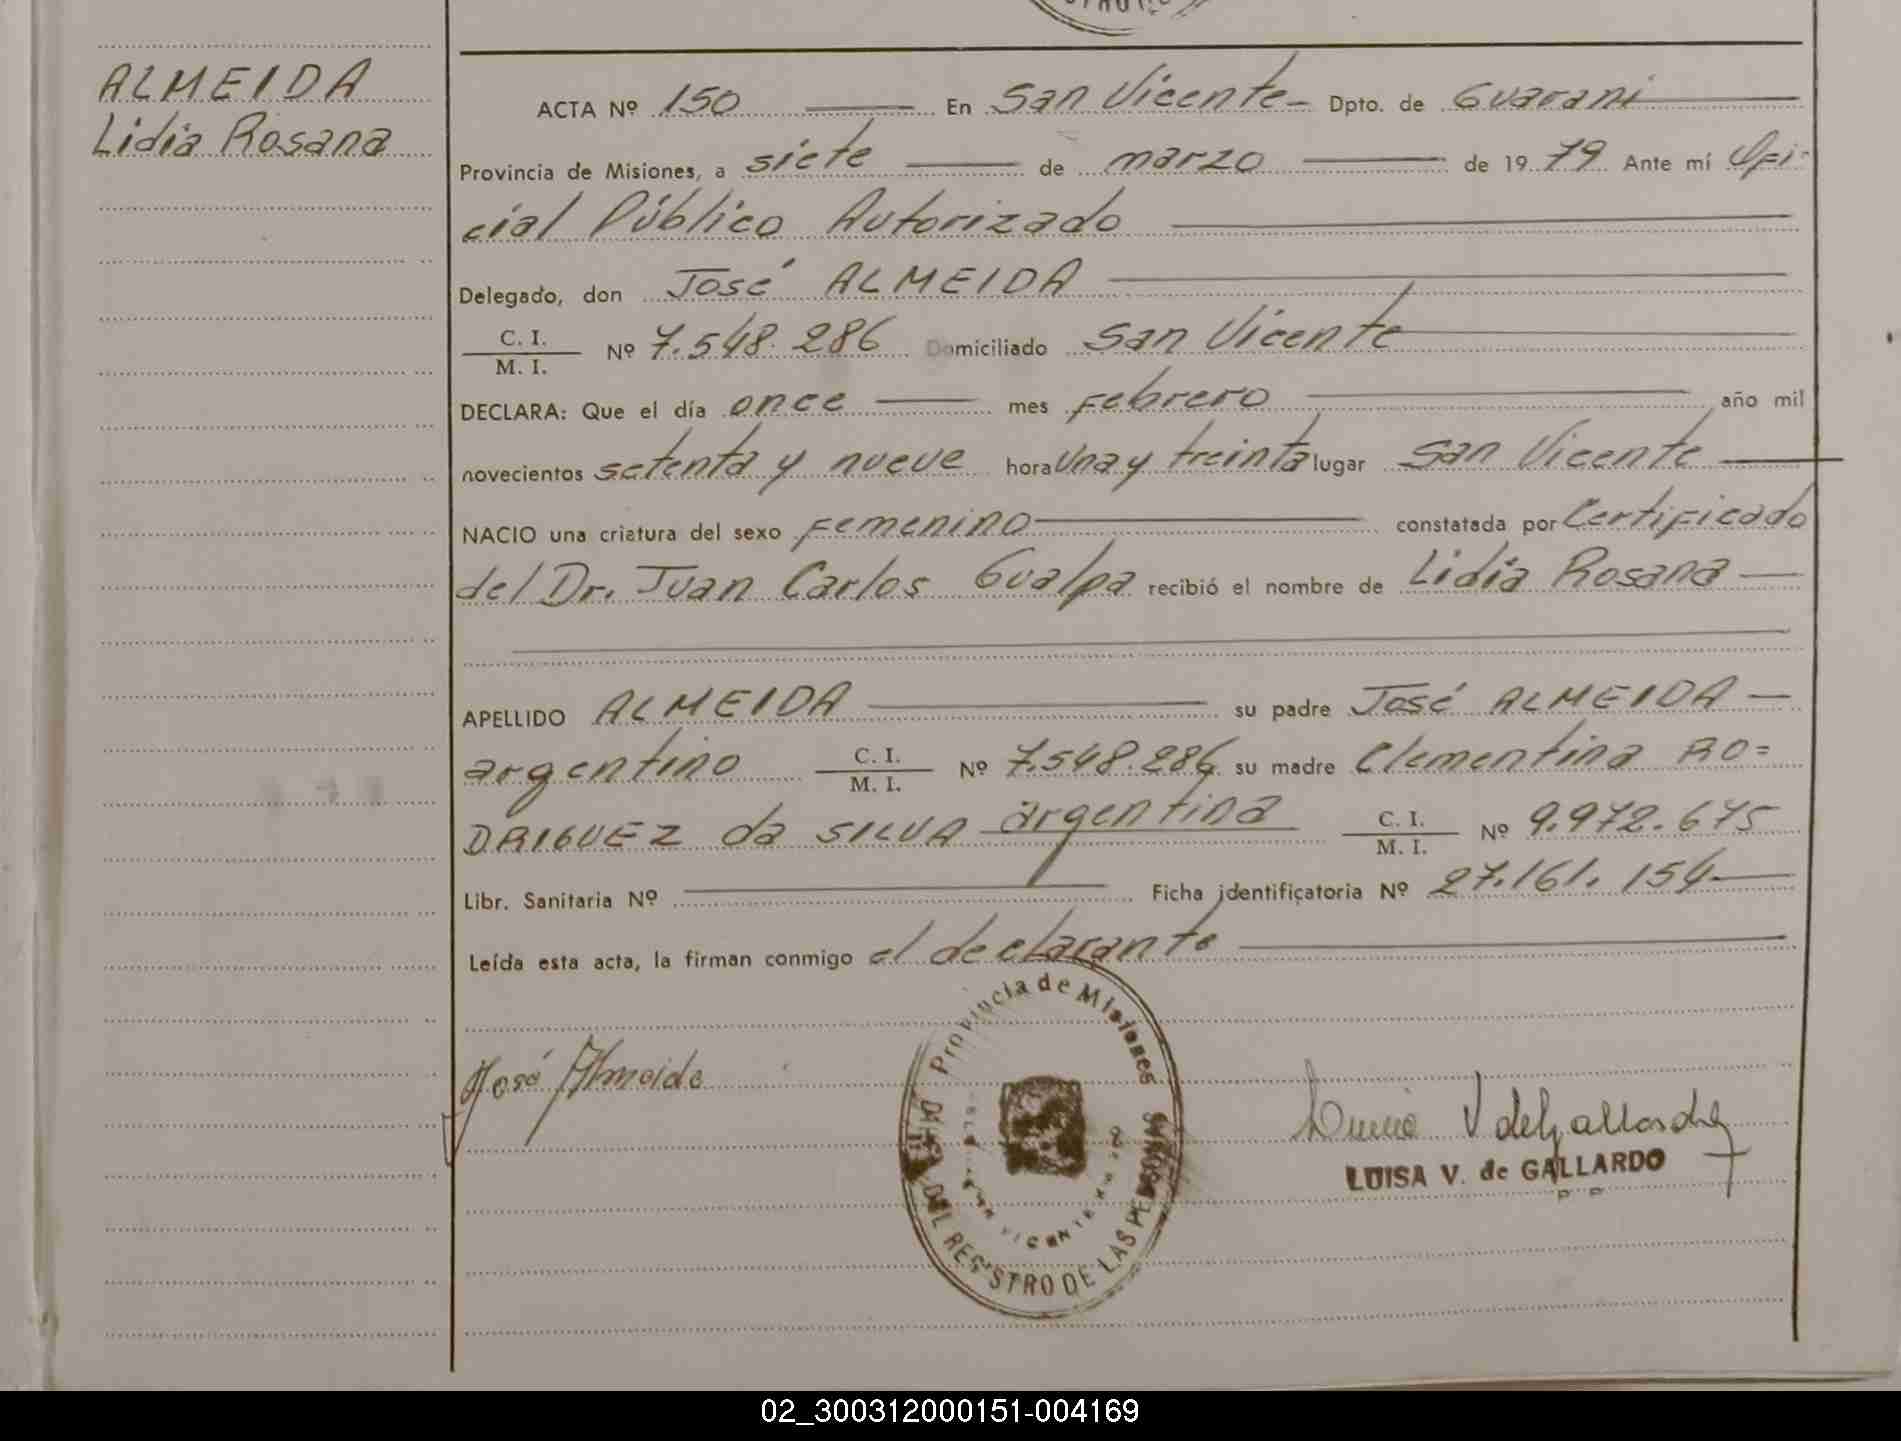 ALMEIDA
Lidia Rosana
ACTA Nº 150 En San Vicente Dpto. de Guarani
Provincia de Misiones, a siete de marzo de 1979 Ante mí Ofi-
cial Público Autorizado
Delegado, don José ALMEIDA
C. I.
M. I.
Nº 7.548.286 Domiciliado San Vicente
DECLARA: Que el día once mes febrero año mil
novecientos setenta y nueve hora Una y treinta lugar San Vicente
NACIO una criatura del sexo femenino constatada por Certificado
del Dr. Juan Carlos Gualpa recibió el nombre de Lidia Rosana
APELLIDO ALMEIDA su padre José ALMEIDA
argentino C. I. M. I. Nº 7.548.286 su madre Clementina RO=
DRIGUEZ da SILVA argentina C. I. M. I. Nº 9.972.675
Libr. Sanitaria Nº Ficha identificatoria Nº 27.161.154
Leída esta acta, la firman conmigo el declarante
Provincia de Misiones
DEL REGISTRO DE LAS PERSONAS
SAN VICENTE
José Almeida
LUISA V. de GALLARDO
02_300312000151-004169